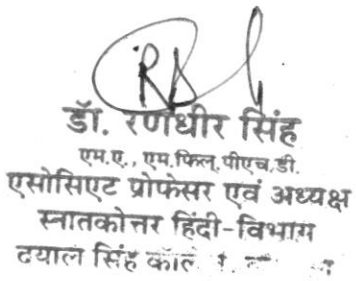 डॉ. रणधीर सिंह
एम.ए., एम.फिल, पीएच.डी.
एसोसिएट प्रोफेसर एवं अध्यक्ष
स्नातकोत्तर हिंदी-विभाग
दयाल सिंह